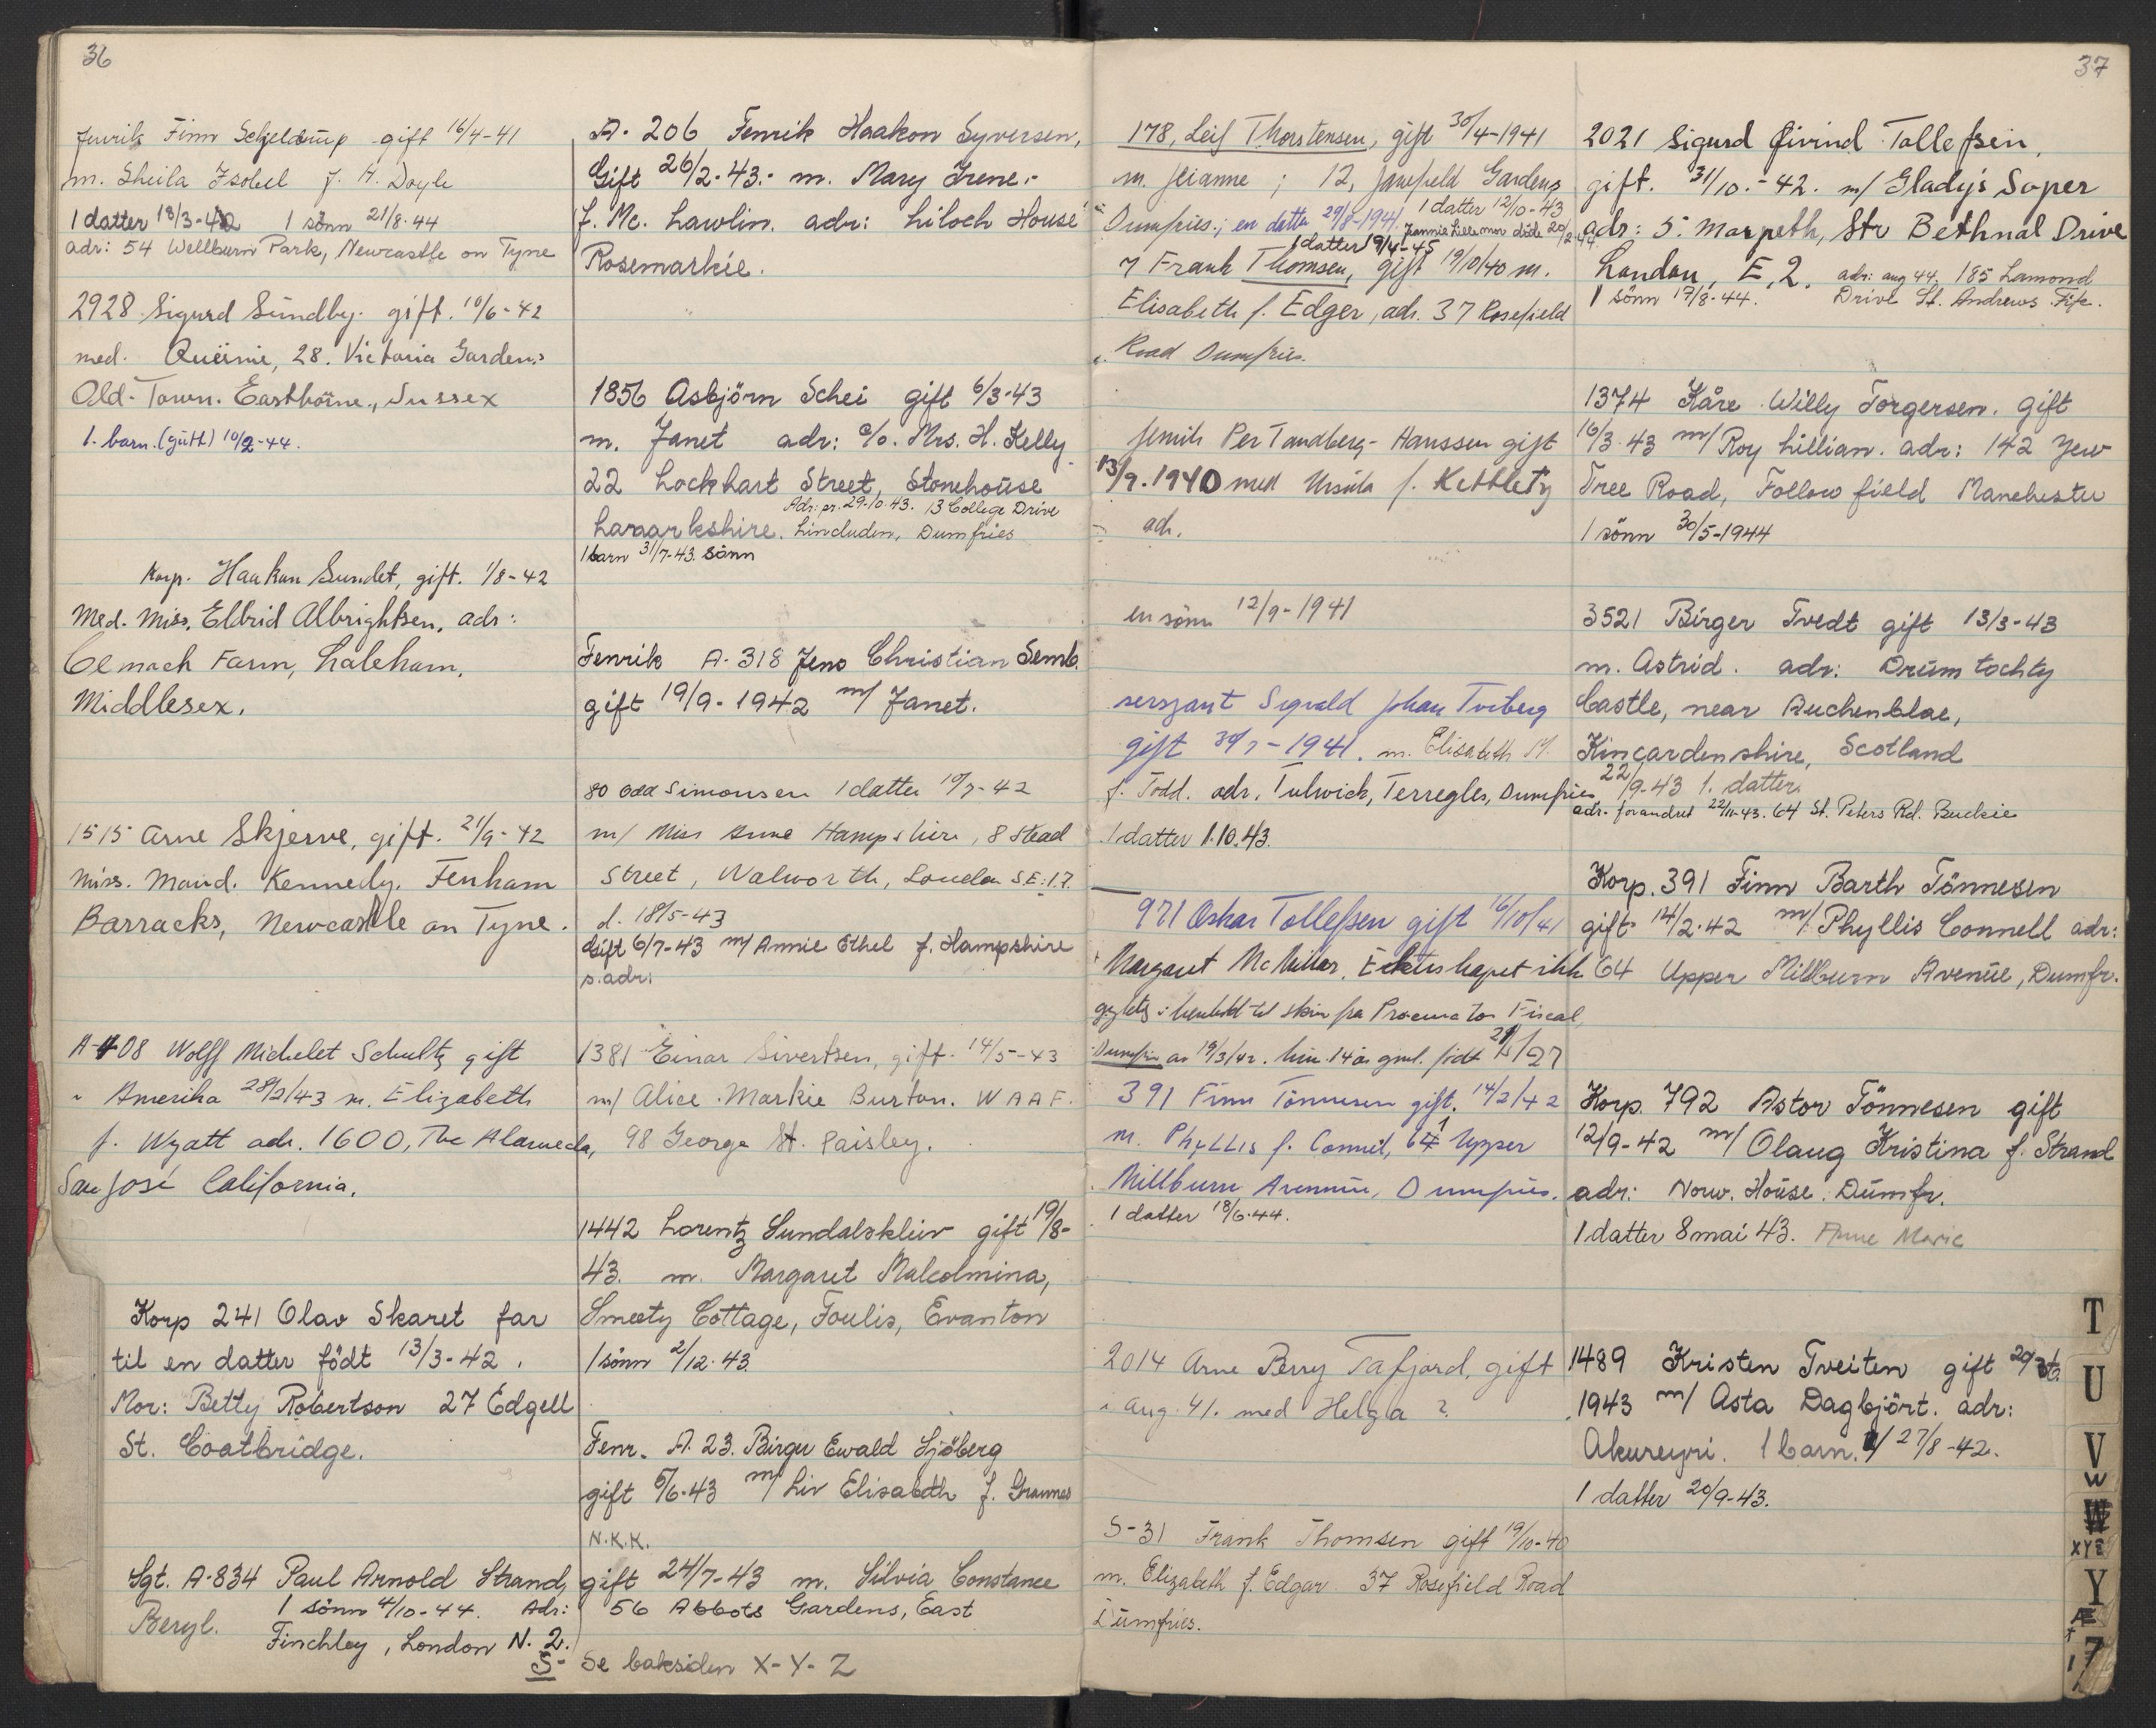 36
Fenrik Finn Schjeldrup gift 16/4-41
m. Sheila Isobel f. H. Doyle
1 datter 18/3-42 1 sönn 21/8-44
adr: 54 Wellburn Park, Newcastle on Tyne
2928 Sigurd Sundby. gift. 10/6-42
med. Queenie, 28. Victoria Gardens
Old-Town. Eastborne, Sussex
1. barn. (gutt) 10/2-44.
Korp. Haakon Sundet, gift. 1/8-42
med. Miss. Eldrid Albrightsen, adr:
Farm, Laleham,
Middlesex.
1515 Arne Skjerve, gift. 21/9-42
Miss. Maud. Kennedy. Fenham
Barracks, Newcastle on Tyne.
A-408 Wolff Michelet Schultz gift
i Amerika 28/2/43 m. Elizabeth
f. Wyatt adr. 1600, The Alameda,
San José California.
Korp 241 Olav Skaret far
til en datter födt 13/3-42.
Mor: Betty Robertson 27 Edgell
St. Coatbridge.
Sgt. A-834 Paul Arnold Strand, gift 24/7-43 m. Silvia Constance
Beryl. 1 sönn 4/10-44. Adr: 56 Abbots Gardens, East
Finchley, London N. 2.
S- Se baksiden X-Y-Z
A. 206 Fenrik Haakon Syversen,
Gift 26/2-43.- m. Mary Irene.-
f. Mc. Lawlin. adr: Liloch House
Rosemarkie.
1856 Asbjörn Schei gift 6/3-43
m. Janet adr: c/o. Mrs. H. Kelly
22 Lockhart Street, Stonehouse
Adr: pr. 29-10-43. 13 College Drive
Lanarkshire. Lincluden, Dumfries
1 barn 31/7-43. sönn
Fenrik A-318 Jens Christian Semb.
gift 19/9-1942 m/ Janet.
80 Odd Simonsen 1 datter 10/7-42
m/ Miss Anne Hampshire, 8 Stead
Street, Walworth, London S.E.17.
d. 18/5-43
Gift 6/7-43 m/ Annie Ethel f. Hampshire
s.adr:
1381 Einar Sivertsen, gift. 14/5-43
m/ Alice Markie Burton. WAAF.
98 George St. Paisley.
1442 Lorentz Sundalskleiv gift 19/8-
43. m. Margaret Malcolmina,
Smeety Cottage, Foulis, Evanton
1 sönn 2/12-43.
Fenr. A. 23. Birger Ewald Sjöberg
gift 5/6-43 m/ Liv Elisabeth f. Graunes
N.K.K.
37
178, Leif Thorstensen, gift 30/4-1941
m. Jeanne; 12, Janefield Gardens
Dumfries.; en datter 29/8-1941. 1 datter 12/10-43
Jannie Lillemor döde 20/2-44.
1 datter 19/4-45
Frank Thomsen, gift 19/10/40 m.
Elisabeth f. Edger, adr. 37 Rosefield
Road Dumfries.
Fenrik Per Tandberg-Hanssen gift
13/9.1940 med Ursula f. Kettlety
adr.
en sönn 12/9-1941
sersjant Sigvald Johan Tveberg
gift 30/7-1941. m. Elisabeth M.
f. Todd. adr. Tulwick, Terregles, Dumfries
1 datter 1.10.43.
971 Oskar Tollefsen gift 16/10/41
Margaret McMillar. Ekteskapet ikke
gyldig i henhold til skriv fra Procurator Fiscal,
Dumfries av 19/3/42. hun 14 år gml. födt 27
391 Finn Tönnesen gift. 14/2/42
m. Phyllis f. Connel, 64 Upper
Millburn Avenue, Dumfries.
1 datter 18/6-44.
2014 Arne Perry Tafjord, gift
i aug. 41. med Helga ?
S-31 Frank Thomsen gift 19/10-40
m. Elizabeth f. Edgar 37 Rosefield Road
Dumfries.
2021 Sigurd Öivind Tollefsen,
gift. 31/10.-42. m/ Gladys Soper
adr: 5. Marpeth, Str Bethnal Drive
London, E,2. adr: aug 44, 185 Lamond
1 sönn 17/8-44. Drive St. Andrews Fife.
1374 Kåre Willy Torgersen. gift
16/3-43 m/ Roy Lillian. adr: 142 Yew
Tree Road, Follow field Manchester
1 sönn 30/5-1944
3521 Birger Tvedt gift 13/3-43
m. Astrid. adr: Drumtochty
Castle, near Auchenblae,
Kincardenshire, Scotland
22/9-43 1. datter.
adr. forandret 22/11-43. 64 St. Peters Rd. Buckie
Korp. 391 Finn Barth Tönnesen
gift 14/2-42 m/ Phyllis Connell adr:
64 Upper Millburn Avenue, Dumfr.
Korp. 792 Astor Tönnesen gift
12/9-42 m/ Olaug Kristina f. Strand
adr: Norw. House. Dumfr.
1 datter 8 mai 43. Anne Marie
1489 Kristen Tveiten gift
1943 m/ Asta Dagbjört. adr:
Akureyri. 1 barn. 27/8-42.
1 datter 20/9-43.
T
U
V
W
W
XYZ
Y
Æ